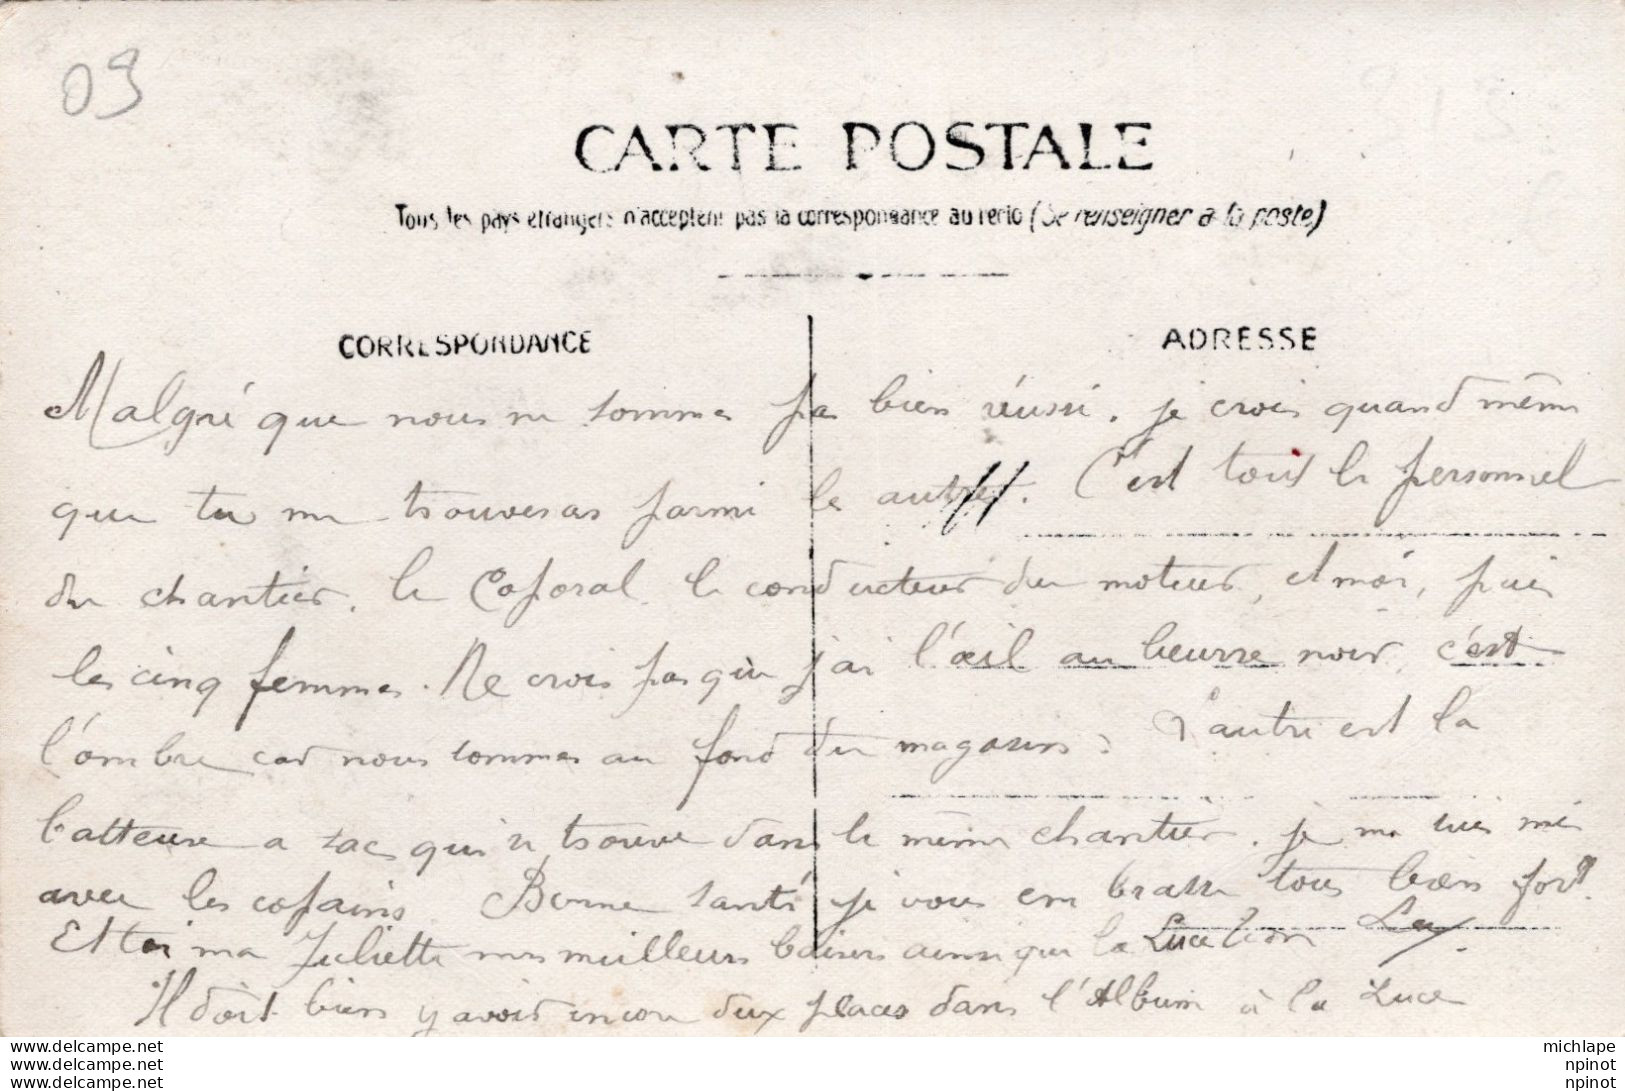 09
CARTE POSTALE
Tous les pays étrangers n'acceptent pas la correspondance au recto (Se renseigner à la poste)
CORRESPONDANCE
ADRESSE
Malgré que nous ne sommes pas bien réussi, je crois quand même
que tu me trouveras parmi les autres. C'est tout le personnel
du chantier, le Caporal, le conducteur du moteur, et moi, puis
les cinq femmes. Ne crois pas que j'ai l'œil au beurre noir, c'est
l'ombre car nous sommes au fond du magasin. L'autre est la
batteuse a sac qui se trouve dans le même chantier. je me suis mis
avec les copains. Bonne santé je vous embrasse tous bien fort.
Et toi ma Juliette mes meilleurs baisers ainsi que la Luce
Il doit bien y avoir encore deux places dans l'Album à la Luce
www.delcampe.net
michlape
www.delcampe.net
npinot
www.delcampe.net
npinot